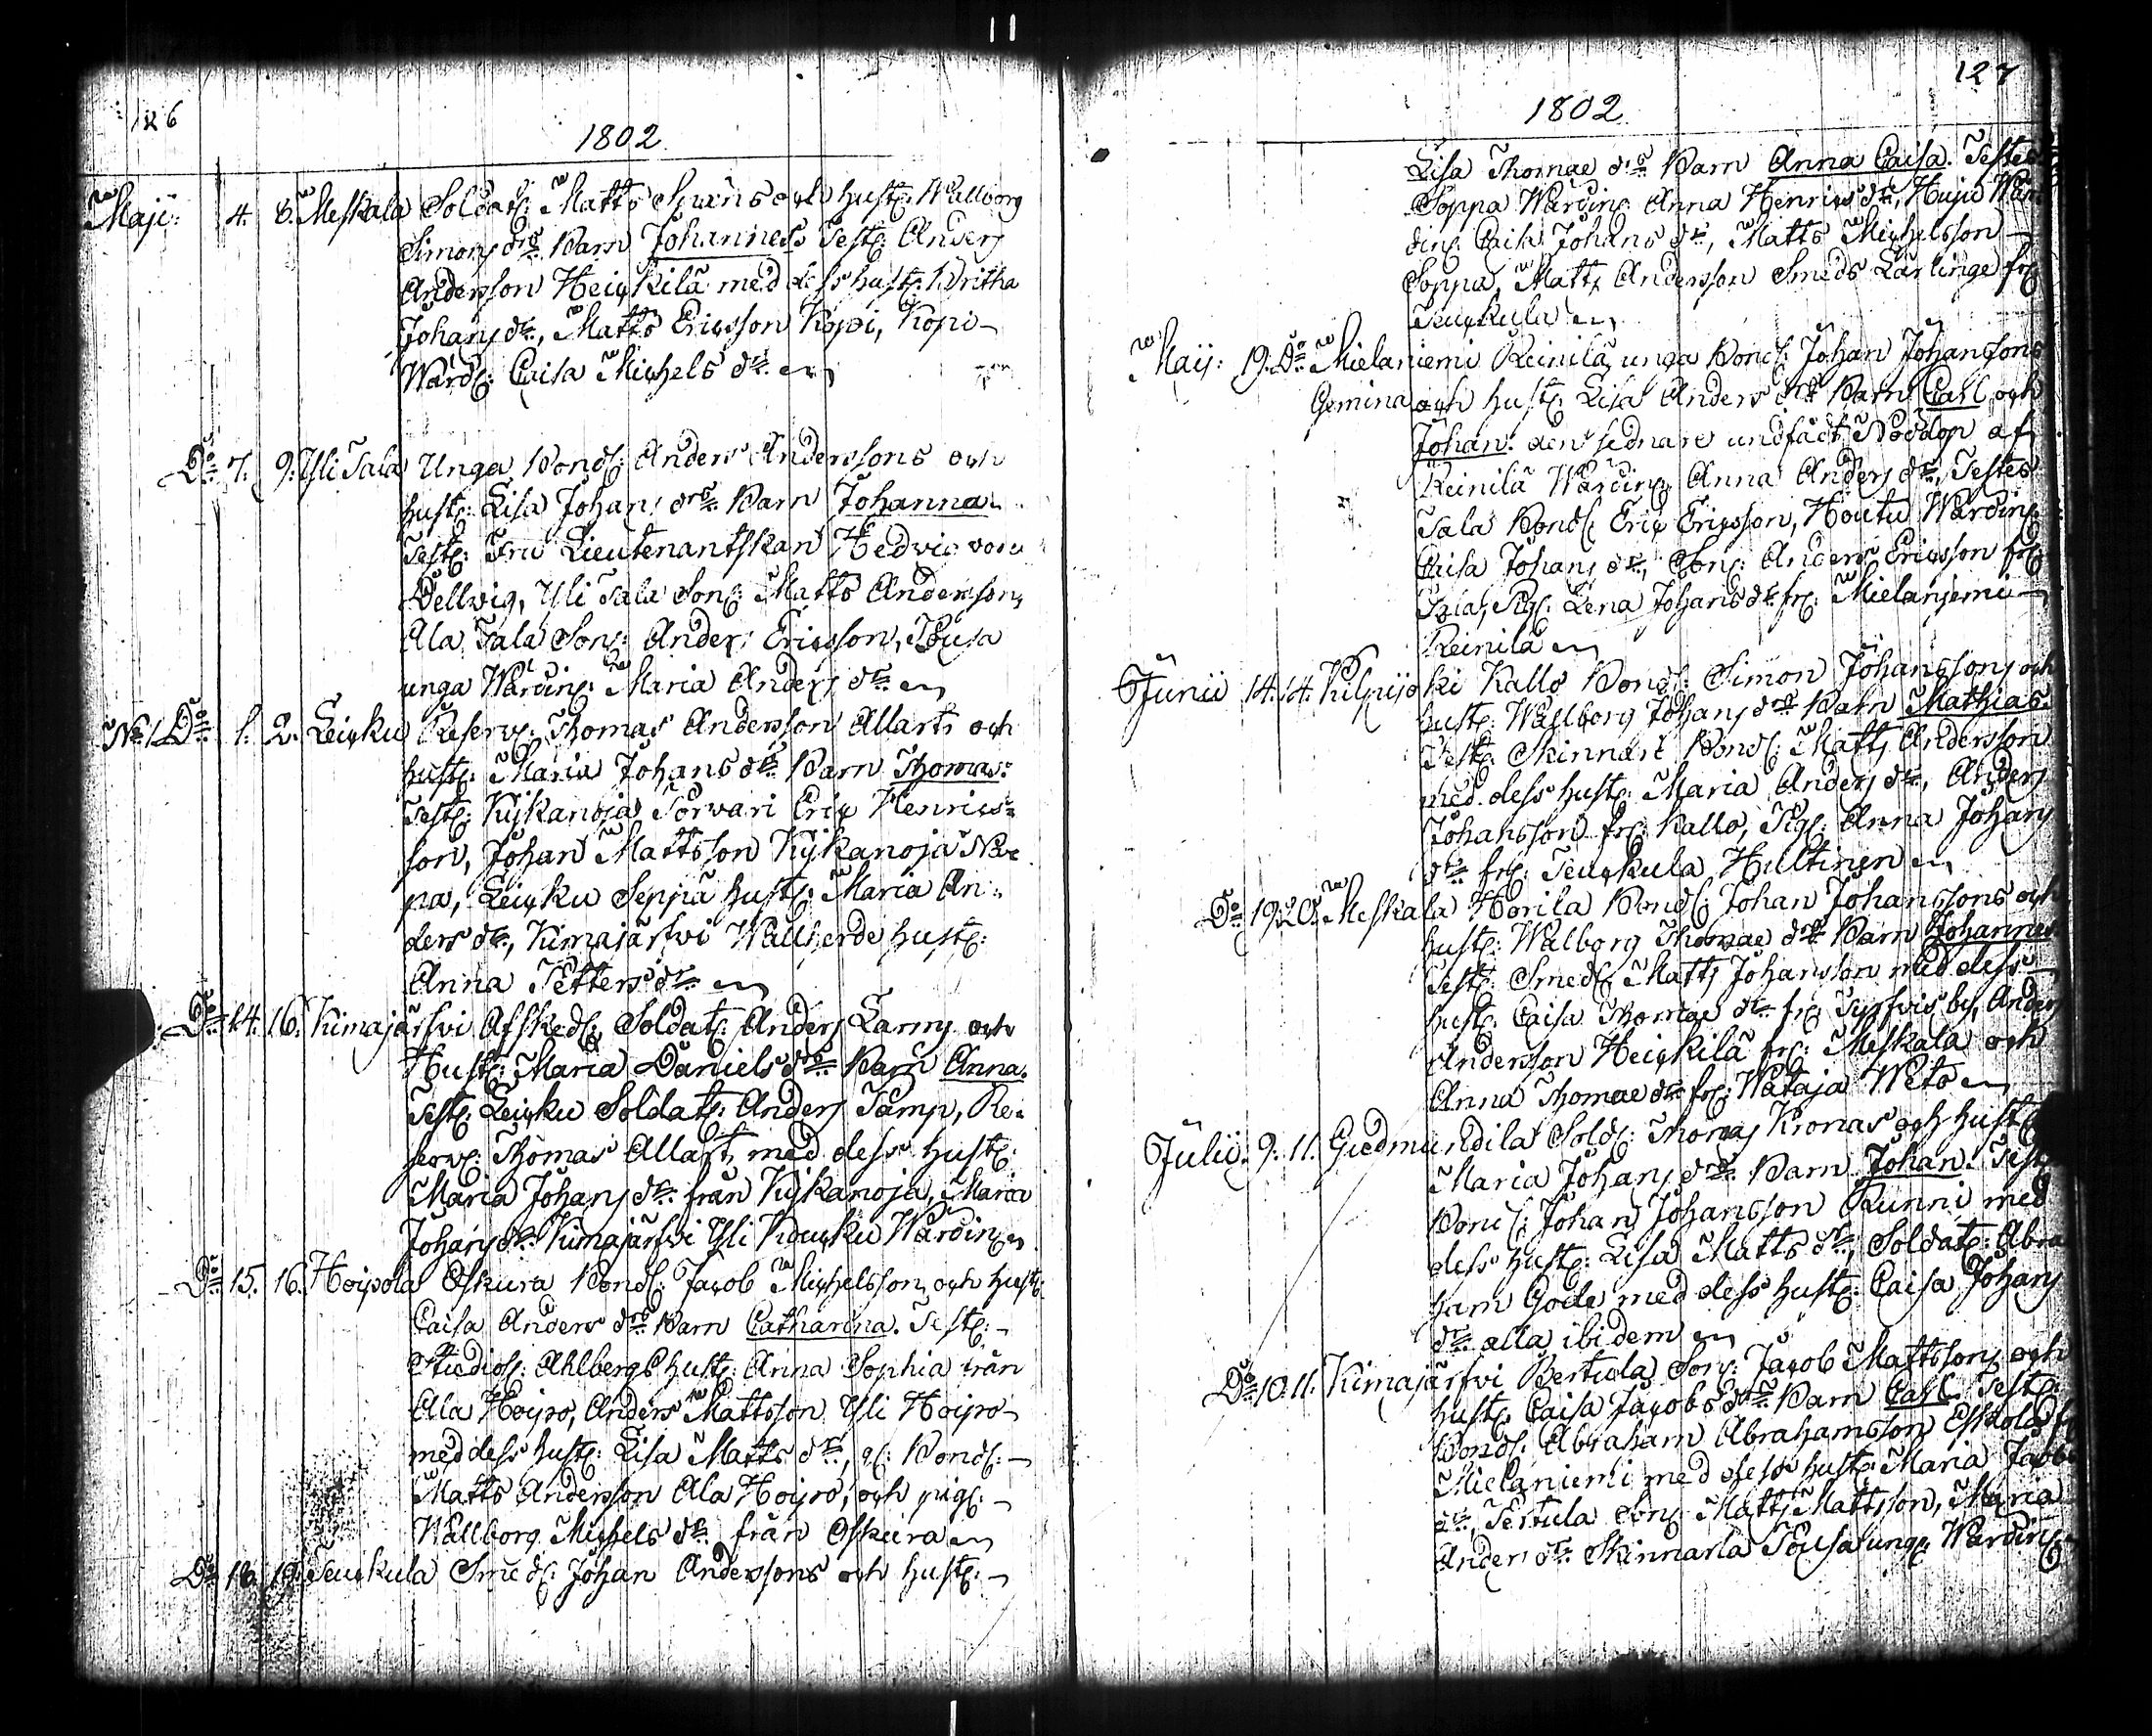 126
1802.
Maji: 4. 8. Meskala Soldat: Matts Spuris och hust: Wallborg
Simons drs Barn Johannes. Test: Anders
Andersson Heickilä med dess hust: Britha
Johans dr., Matts Ericsson Kopi, Kopi
Wärd: Caisa Michels dr.
Do 7. 9. Yli Sala Unga Bond: Anders Anderssons och
hust: Lisa Johans drs Barn Johanna.
Test: Fru Lieutenantskan Hedvig von
Dellvig, Yli Sala Son: Matts Andersson,
Ala Sala Son: Anders Ericsson, Pousa
unga Wärdin: Maria Anders dr.
No 1 Do 1. 2. Leicku Reserv: Thomas Andersson Allarts och
hust: Maria Johans drs Barn Thomas.
Test: Kijkanoja Torvari Eric Henrics-
son, Johan Mattsson Kijkanoja
pa, Leicku Seppä hust: Maria An-
ders dr., Kimajärfvi Wallherde hust:
Anna Petters dr.
Do 14. 16. Kimajärfvi Afsked: Soldat: Anders Larmj och
Hust: Maria Daniels drs Barn Anna.
Test: Leicku Soldat: Anders Tamp, Re-
serv: Thomas Allart med dess hust:
Maria Johans dr. från Kijkanoja, Maria
Johans dr. Kimajärfvi Yli Koucku Wärdin
Do 15. 16. Hoipola Oskura Bond: Jacob Michelsson och hust:
Caisa Anders drs Barn Catharina. Test:
Studios: Ahlbergs hust: Anna Sophia från
Ala Hoipo, Anders Mattsson Yli Hoipo
med dess hust: Lisa Matts dr., Bond:
Matts Andersson Ala Hoipo, och pig:
Wallborg Michels dr. från Oskura
Do 18. 19. Teuckula Smed: Johan Anderssons och hust:
127
1802.
Lisa Thomae drs Barn Anna Caisa. Testes
Soppa Wärdin: Anna Henrics dr., Huju Wär-
din: Caisa Johans dr., Matts Michelsson
Soppa, Matts Andersson Smeds Lärlinge fr:
Teuckula
Maij: 19. Do Mielaniemi Reinilä unga Bond: Johan Johanssons
Gemina och hust: Lisa Anders drs Barn Carl och
Johan. den sednare undfådt Nöddop af
Reinilä Wärdin: Anna Anders dr., Testes
Sala Bond: Eric Ericsson, Houtu Wärdin:
Caisa Johans dr., Son: Anders Ericsson fr:
Sala, Pig: Lena Johans dr. fr: Mielaniemi
Reinilä
Junii 14. 14. Kilpijoki Kallo Bond: Simon Johanssons och
hust: Wallborg Johans drs Barn Mathias.
Test: Skinnari Bond: Matts Andersson
med dess hust: Maria Anders dr., Anders
Johansson fr: Kallo, Pig: Anna Johans
dr. fr: Teuckula Hultinen
Do 19. 20. Meskala Horila Bond: Johan Johanssons och
hust: Walborg Thomae drs Barn Johannes.
Test: Smed: Matts Johansson med dess
hust: Caisa Thomae dr. fr: Tyrfvis by, Anders
Andersson Heickilä fr: Meskala och
Anna Thomae dr. fr: Wataja Weto
Julii. 9. 11. Gudmundila Sold: Thomas Kronas och hust:
Maria Johans drs Barn Johan. Test:
Bond: Johan Johansson Runni med
dess hust: Lisa Matts dr., Soldat: Abra-
ham Gode med dess hust: Caisa Johans
dr. alla ibidem
Do 10. 11. Kimajärfvi Bertula Son: Jacob Mattssons och
hust: Caisa Jacobs drs Barn Carl. Test:
Bond: Abraham Abrahamsson Eskola fr:
Mielaniemi med dess hust: Maria Jacobs
dr., Pertula Son: Matts Mattsson, Maria
Anders dr. Skinnarla Pousa ung: Wärdin: